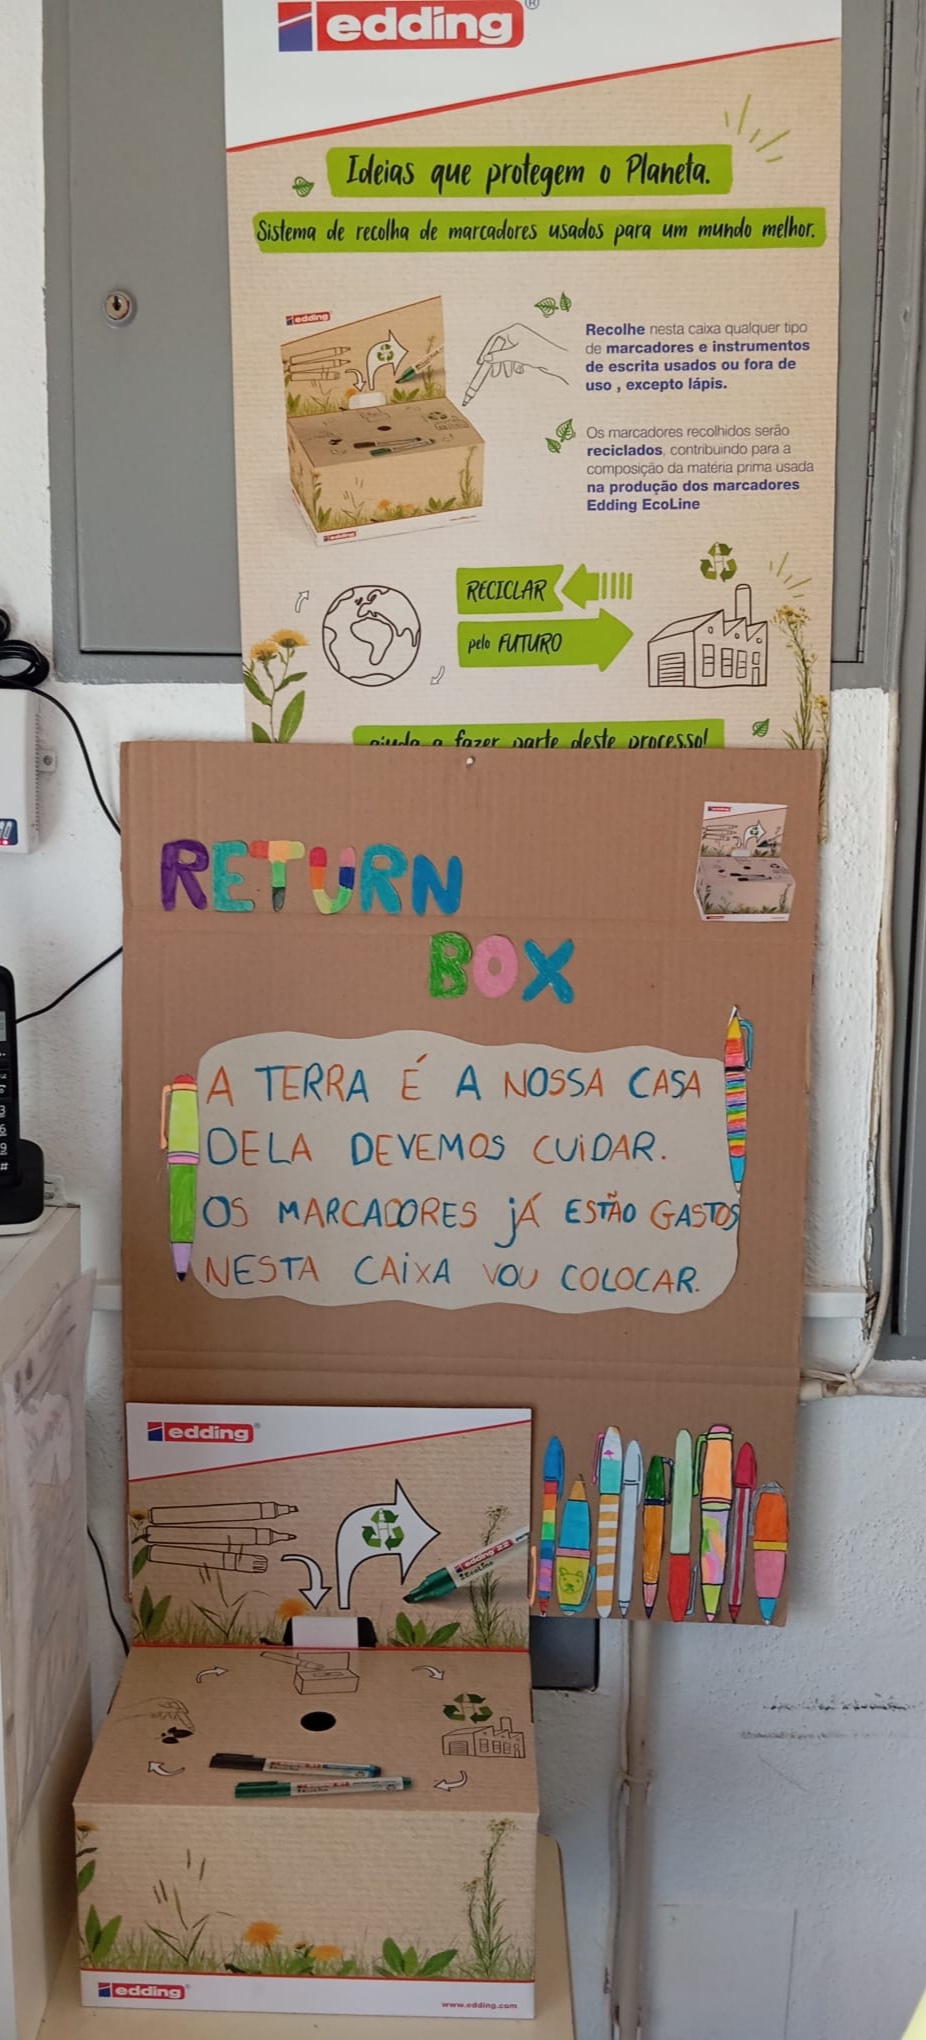 edding®
Ideias que protegem o Planeta.
Sistema de recolha de marcadores usados para um mundo melhor.
edding
Recolhe nesta caixa qualquer tipo
de marcadores e instrumentos
de escrita usados ou fora de
uso , excepto lápis.
Os marcadores recolhidos serão
reciclados, contribuindo para a
composição da matéria prima usada
na produção dos marcadores
Edding EcoLine
edding
RECICLAR
pelo FUTURO
ajuda a fazer parte deste processo!
RETURN
BOX
A TERRA É A NOSSA CASA
DELA DEVEMOS CUIDAR.
OS MARCADORES JÁ ESTÃO GASTOS
NESTA CAIXA VOU COLOCAR.
edding®
edding 22
EcoLine
edding®
www.edding.com